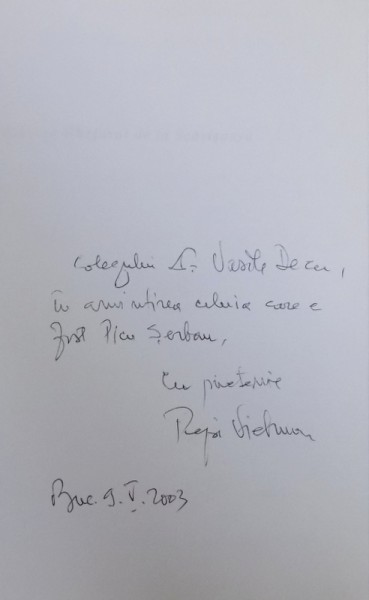 Colegului Dr. Vasile Decu,
în amintirea celuia care a
fost Picu Șerban,
Cu prietenie
Buc. 9.V.2003